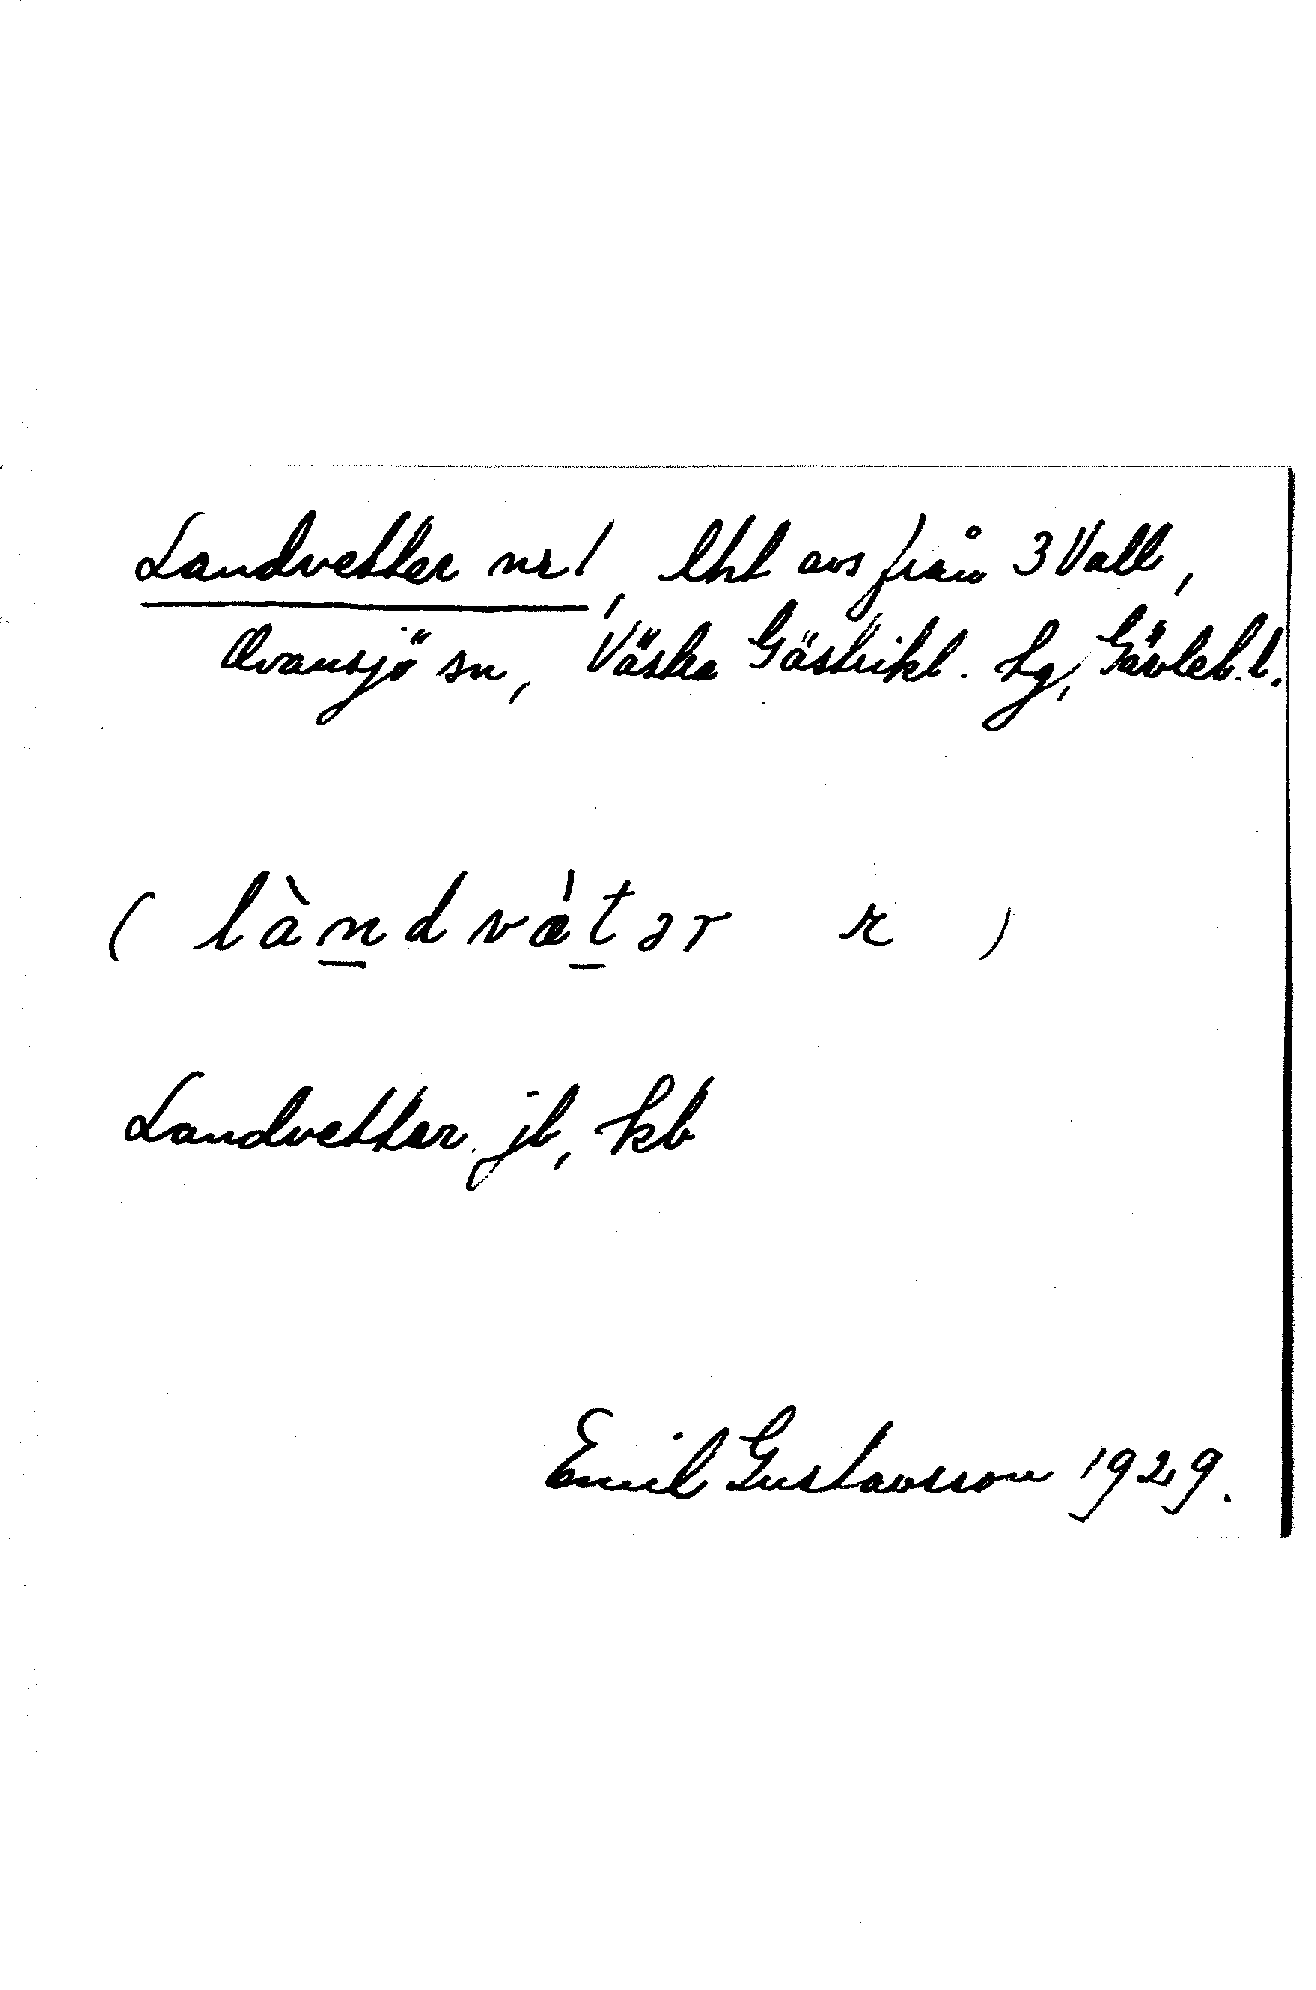 Landvetter nr 1, lht avs från 3 Vall,
Ovansjö sn, Västra Gästrikl. tg, Gävleb. l.
( làndvǽtər r )
Landvetter jb, kb
Emil Gustavsson 1929.